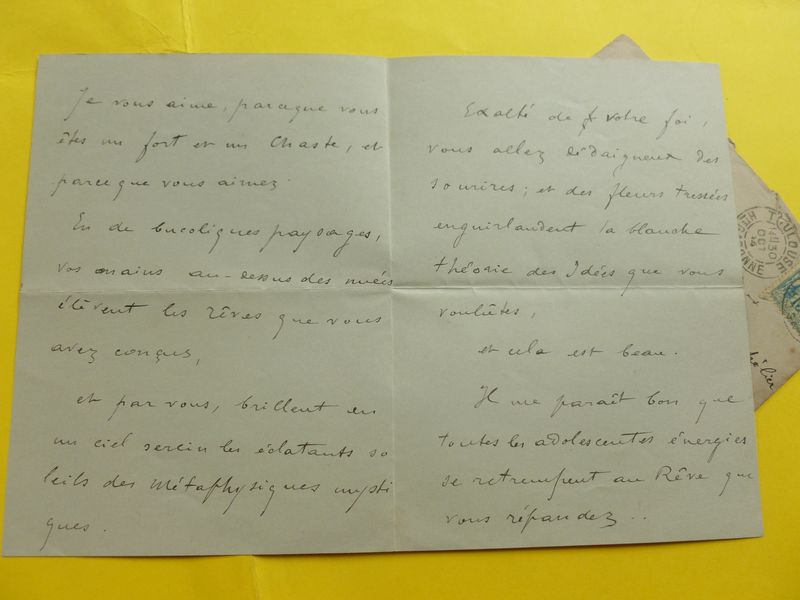 Je vous aime, parceque vous
êtes un fort et un chaste, et
parceque vous aimez.
En de bucoliques paysages,
vos mains au-dessus des nuées
élèvent les rêves que vous
avez conçus,
et par vous, brillent en
un ciel serein les éclatants so
leils des Métaphysiques mysti
ques.
Exalté de votre foi,
vous allez dédaigneux des
sourires ; et des fleurs tressées
enguirlandent la blanche
théorie des Idées que vous
voulûtes,
et cela est beau.
Il me paraît bon que
toutes les adolescentes énergies
se retrempent au Rêve que
vous répandez..
TOULOUSE
14 30
OCT
HTE GARONNE